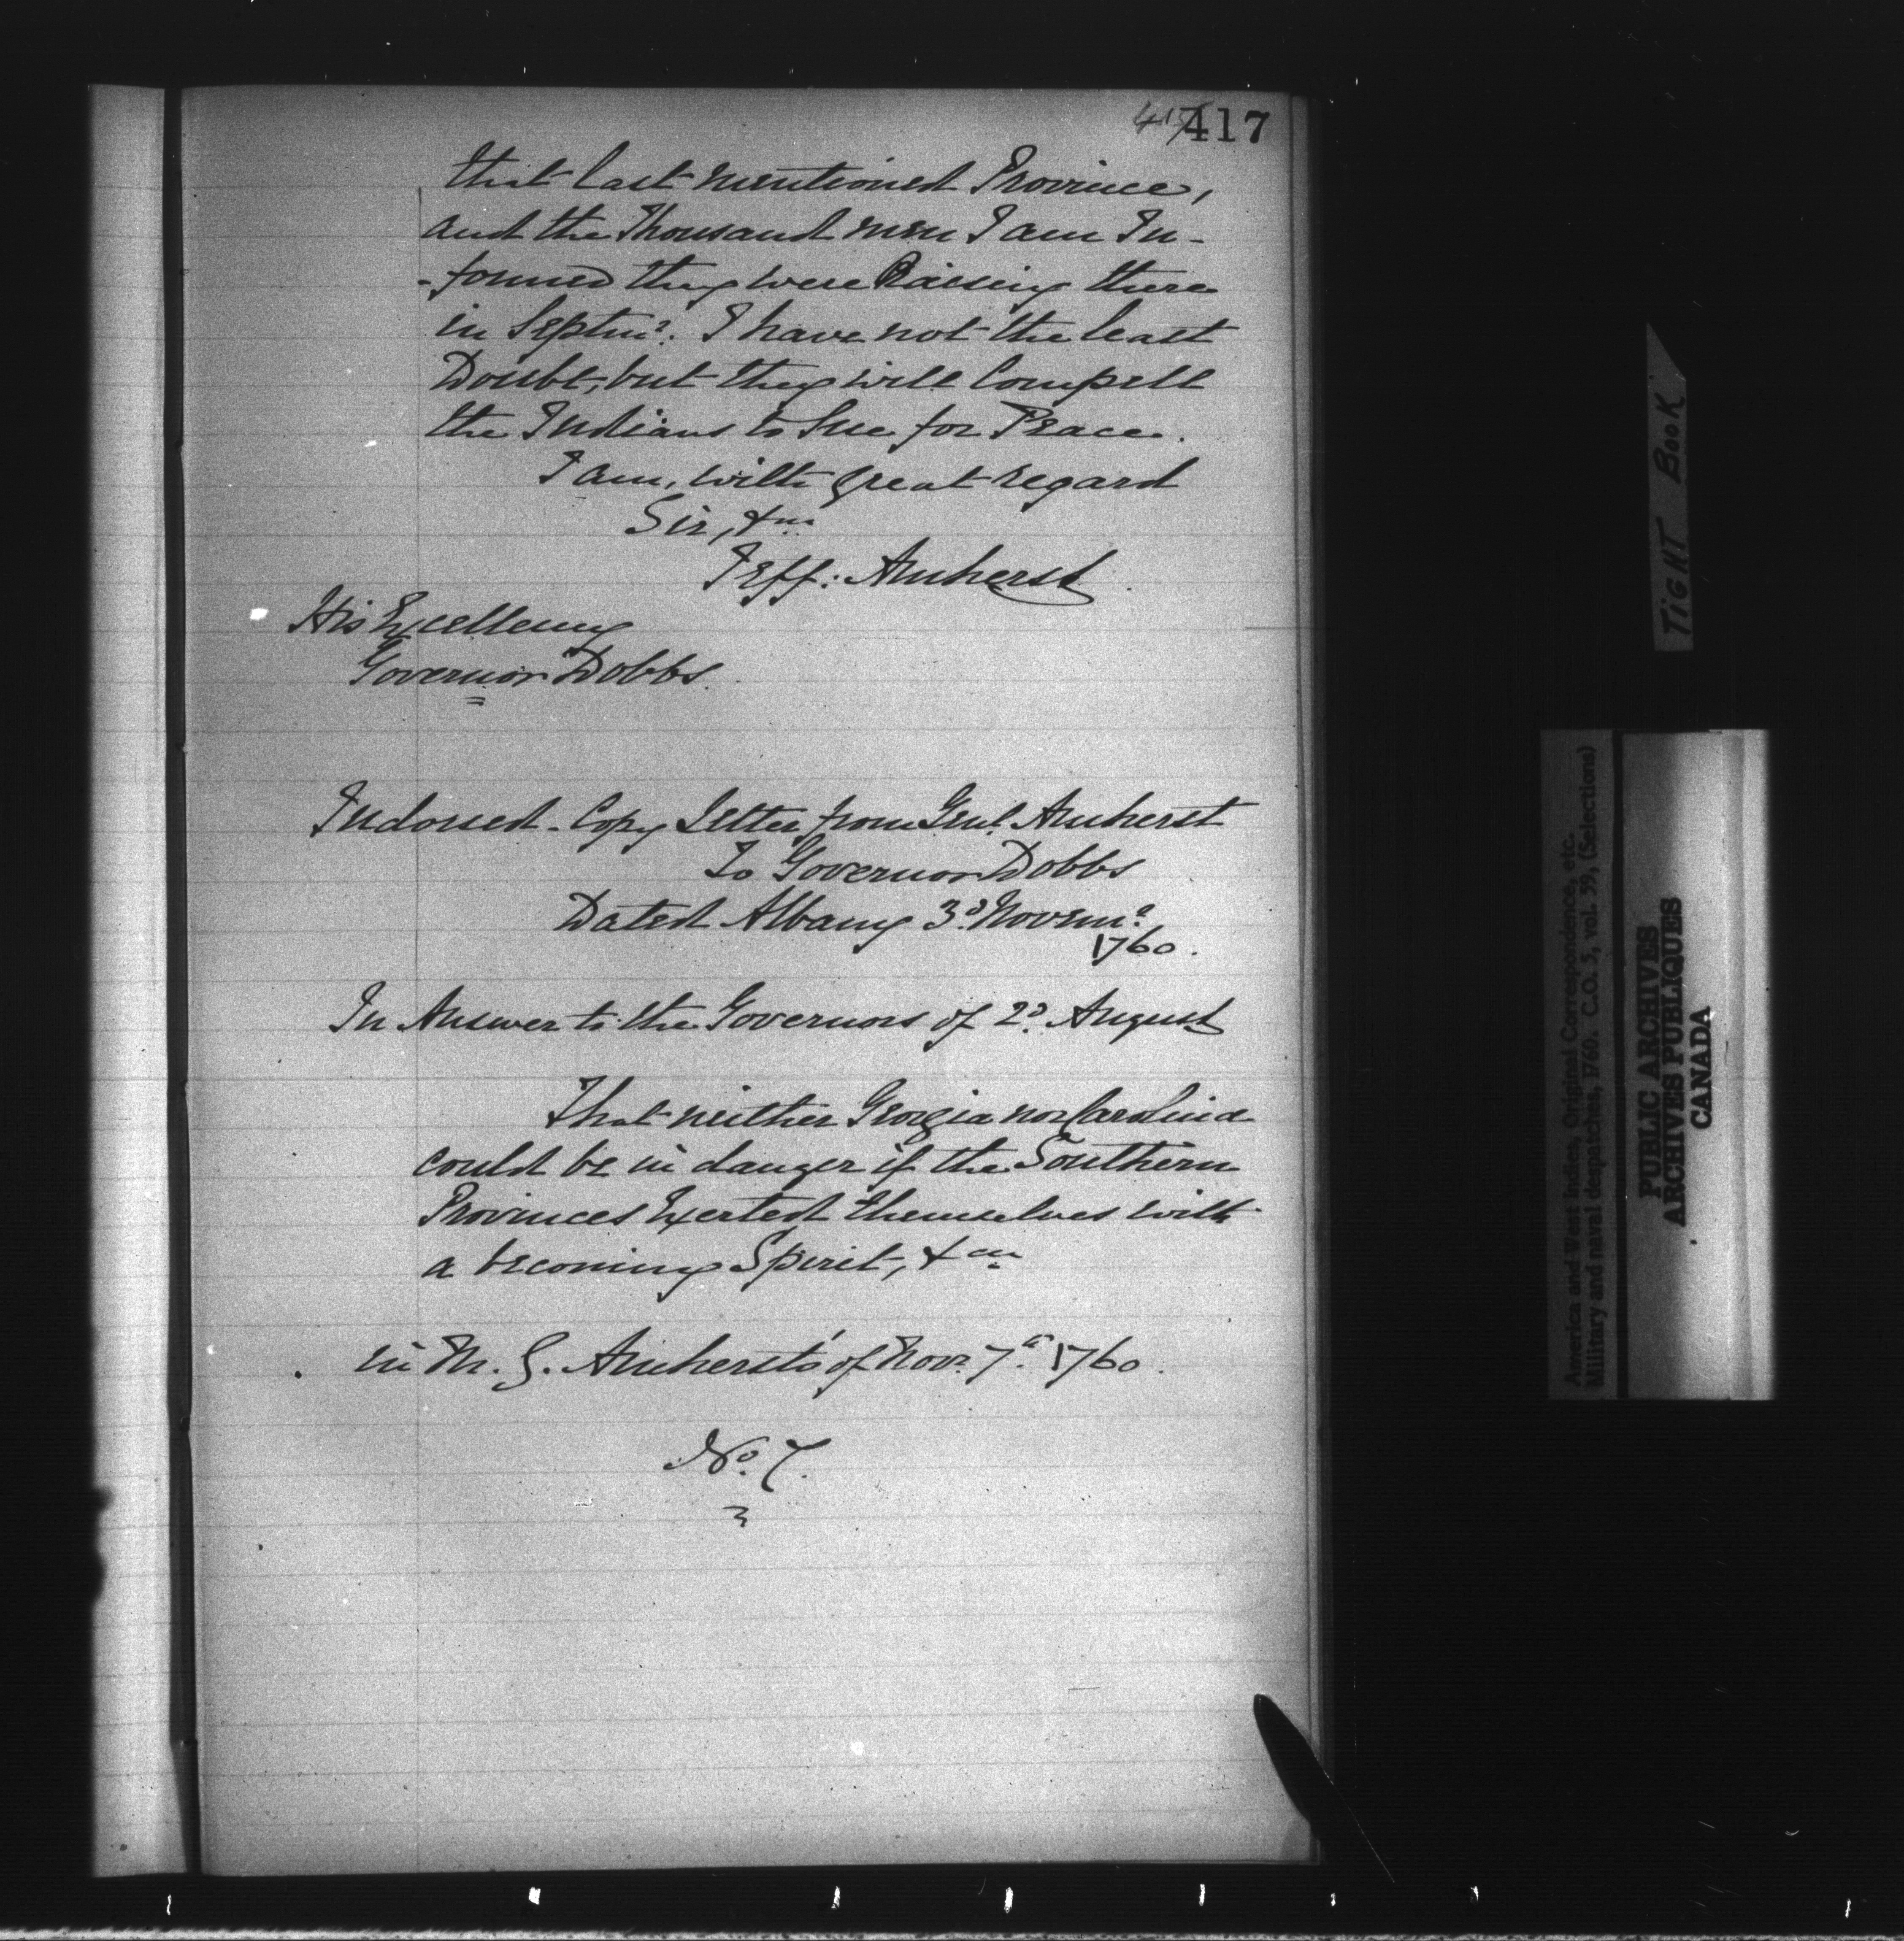 417
that last mentioned Province,
and the Thousand men I am In-
-formed they were Raising there
in Septmr. I have not the least
Doubt, but they will Compell
the Indians to Sue for Peace.
I am, with great regard
Sir, &ca
Jeff: Amherst.
His Excellency
Governor Dobbs.
Indorsed - Copy Letter from Genl. Amherst
To Governor Dobbs
Dated Albany 3d. Novemr.
1760.
In Answer to the Governors of 2d. August
That neither Georgia nor Carolina
could be in danger if the Southern
Provinces Exerted themselves with
a becoming Spirit, &ca
in M. G. Amherst's of Novr. 7th. 1760.
No. 7.
TIGHT BOOK
America and West Indies, Original Correspondence, etc.
Military and naval despatches, 1760. C.O. 5, vol. 59, (Selections)
PUBLIC ARCHIVES
ARCHIVES PUBLIQUES
CANADA